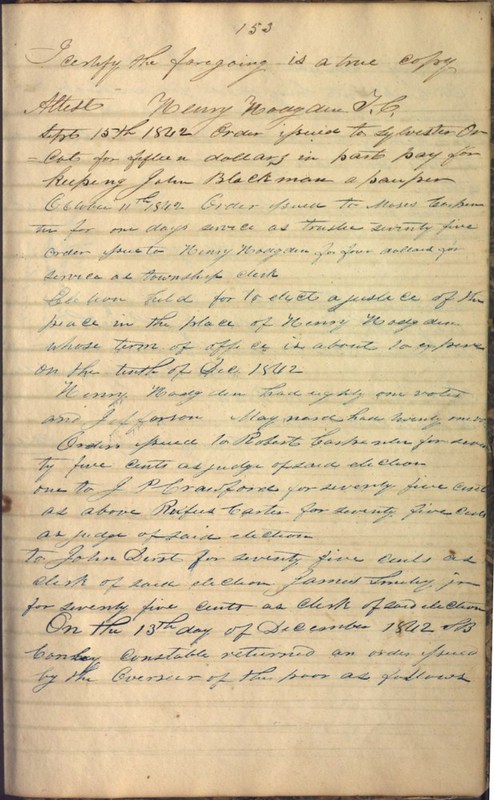 153
I certify the foregoing is a true copy
Attest Henry Hodgden T.C.
Sept 15th 1842 Order issued to Sylvester Or
=cot for fifteen dollars in part pay for
keeping John Blackman a pauper
October 11th 1842 Order issued to Moses Carpen
ter for one days service as trustee seventy five
order issue to Henry Hodgden for four dollars for
service as township clerk
Election held for to elect a justice of the
peace in the place of Henry Hodgden
whose term of office is about to expire
on the tenth of Dec 1842
Henry Hodgden had eighty one votes
and Jefferson Maynard had twenty one
Orders issued to Robert Carpenter for seven
ty five cents as judge of said election
one to J P Crawford for seventy five cents
as above Rufus Carter for seventy five cents
as judge of said election
to John Dust for seventy five cents as
clerk of said election James Smiley jr
for seventy five cents as clerk of said election
On the 13th day of December 1842
Constable returned an order issued
by the Overseer of the poor as follows